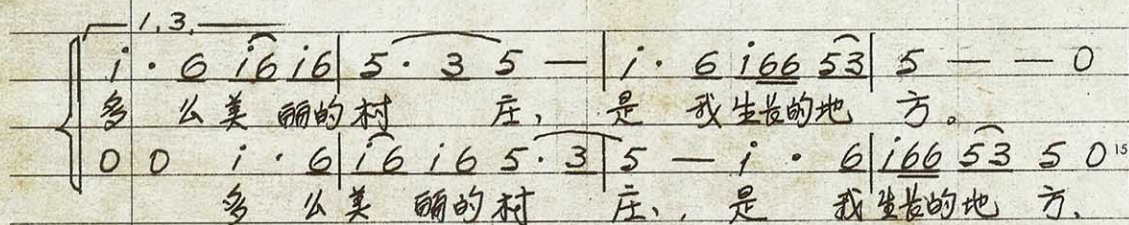 1.3.
i · 6 i6 i6 | 5 · 3 5 — | i · 6 i66 53 | 5 — — 0
多 么美 丽的村 庄, 是 我生长的地 方。
0 0 i · 6 | i6 i6 5 · 3 | 5 — i · 6 | i66 53 5 0 15
多 么美 丽的村 庄, 是 我生长的地 方、